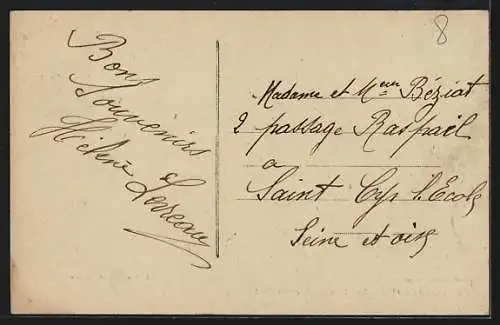 Bons
Souvenirs
Hélène
8
Madame et Mr Béziat
2 passage Raspail
a
Saint Cyr l'Ecole
Seine et oise